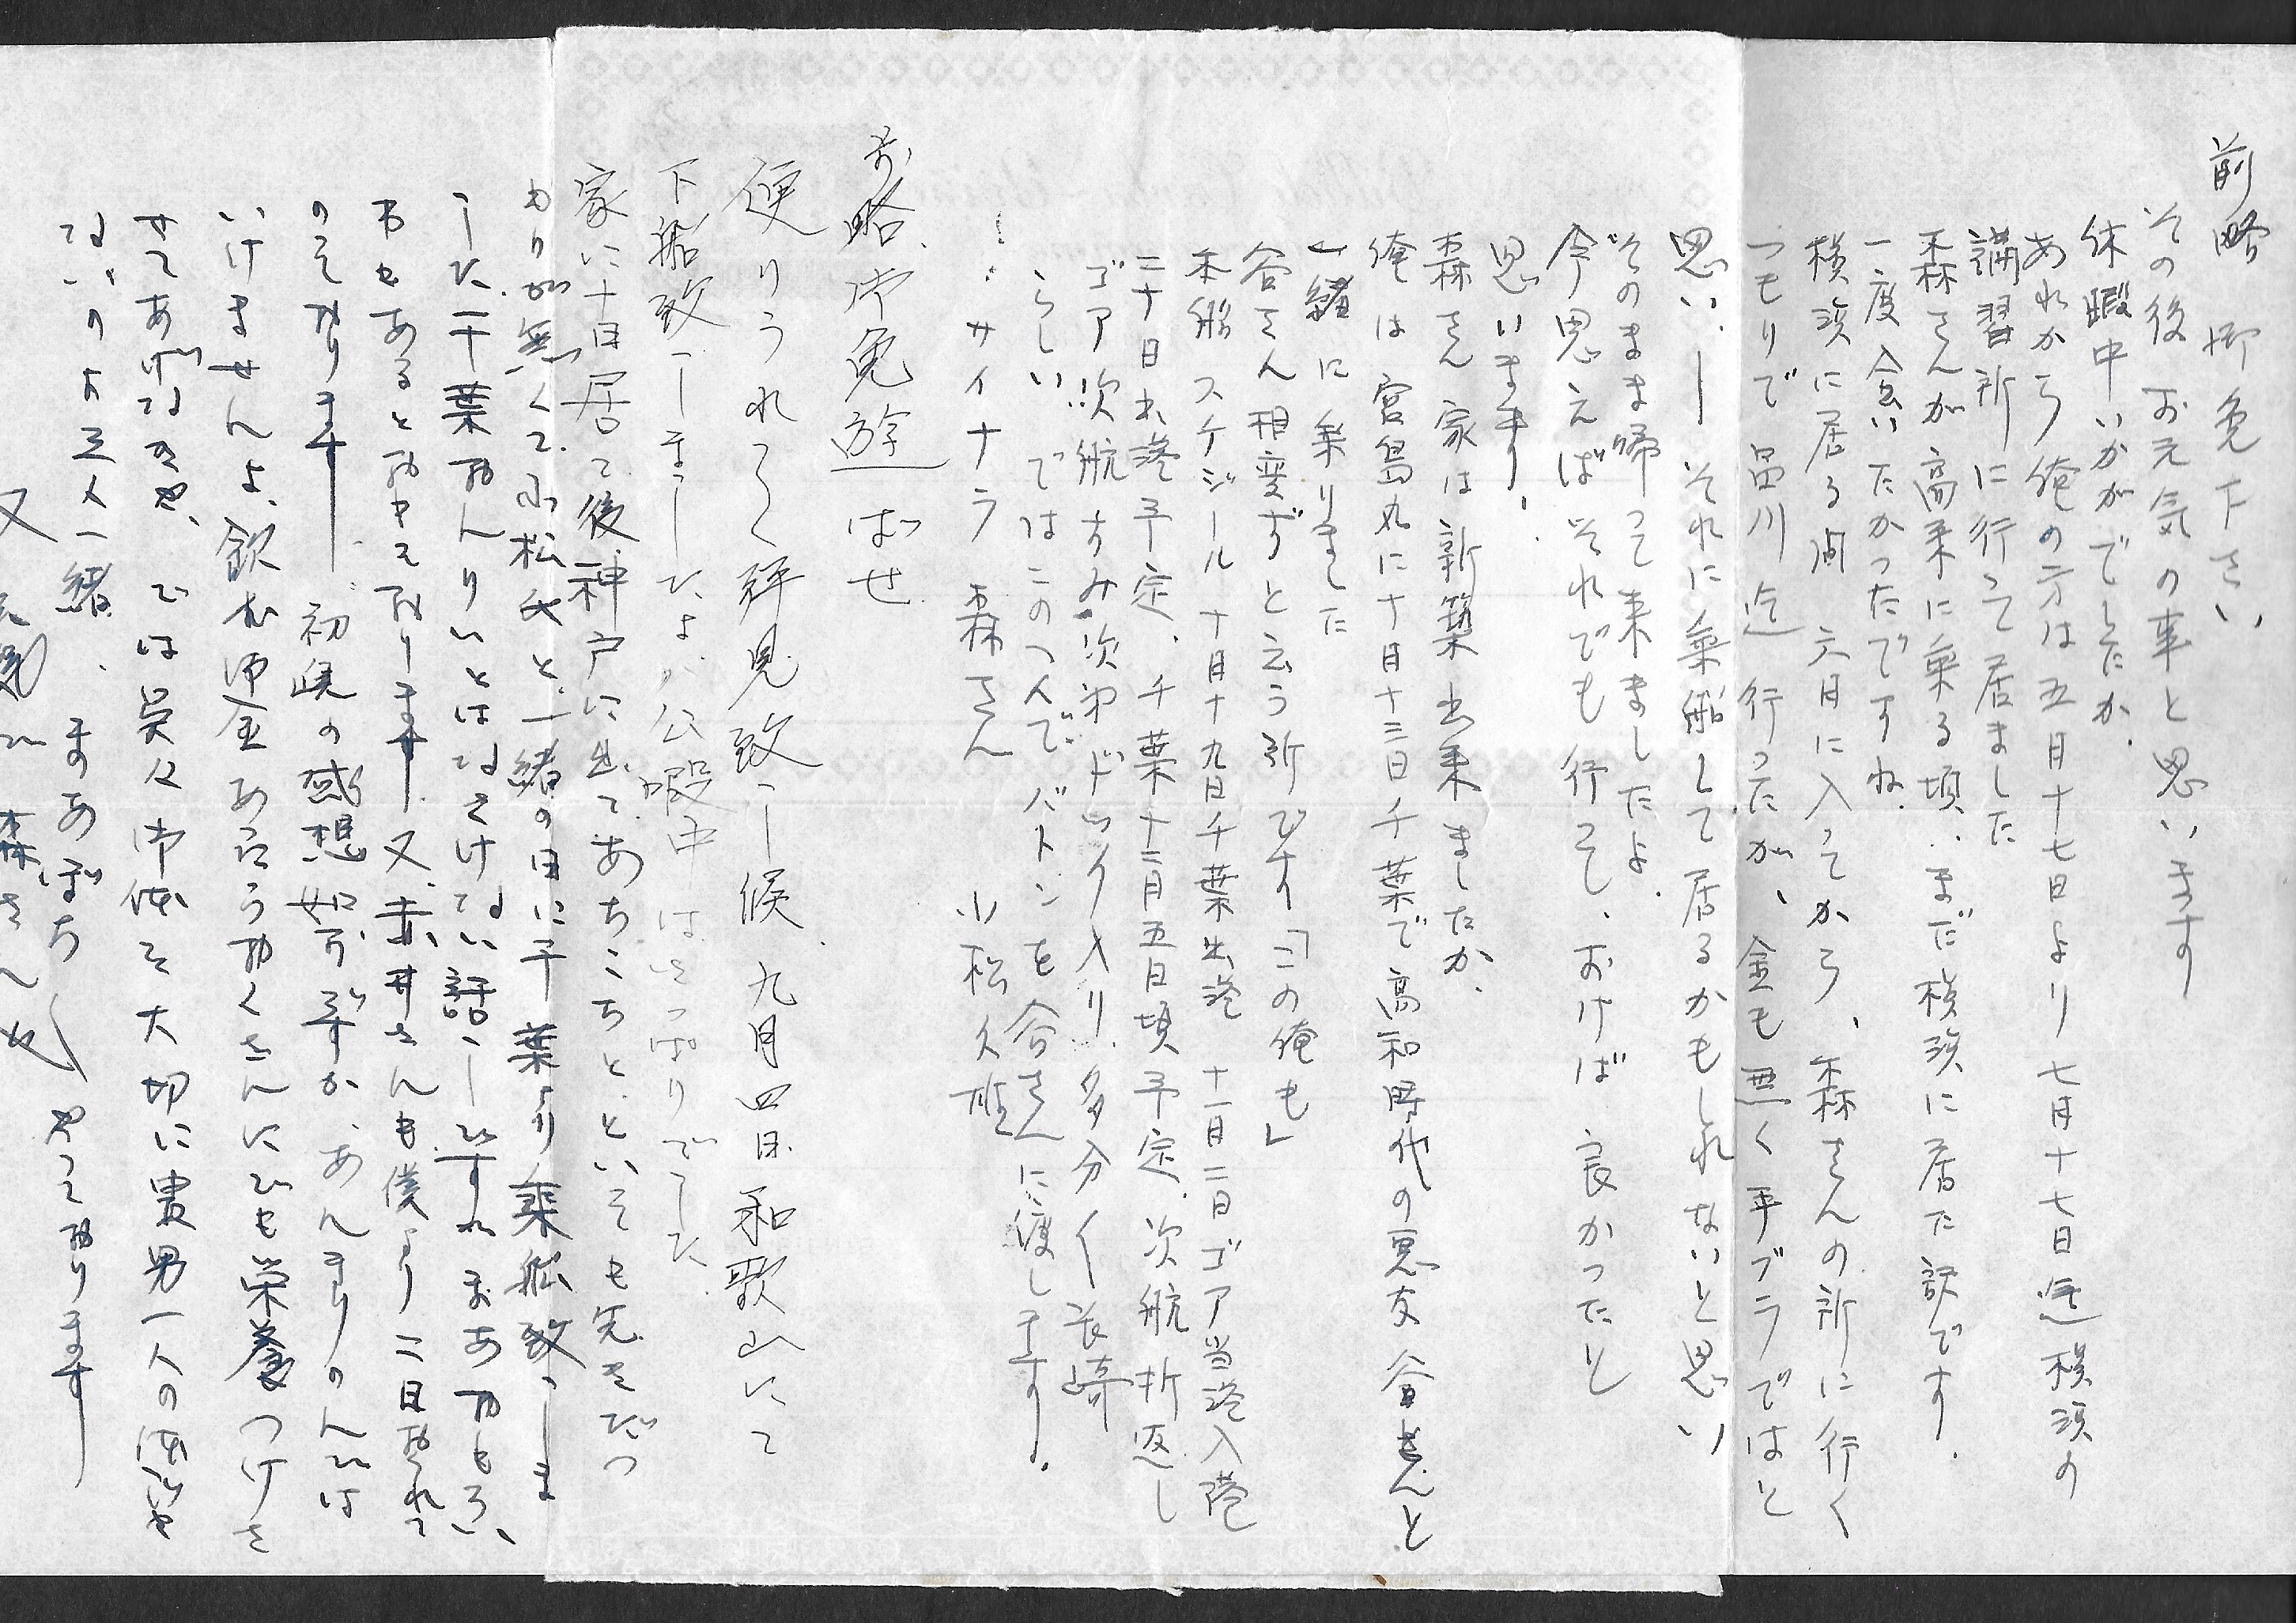 前略 御免下さい
その後お元気の事と思います
休暇中いかがでしたか、
あれから俺の方は五月十七日より七月十七日迄横須の
講習所に行って居ました
森さんが高来に乗る頃、まだ横須に居た訳です。
一度会いたかったですね、
横須に居る間 六月に入ってから、森さんの所に行く
つもりで品川迄行ったが、金も無く手ブラではと
思い、ーそれに乗船して居るかもしれないと思い
そのまま帰って来ましたよ、
今思えばそれでも行って、おけば良かったと
思います、
森さん家は新築出来ましたか、
俺は宮島丸に十月十三日千葉で高和時代の悪友谷さんと
一緒に乗りました
谷さん相変ずと云う所です「この俺も」
本船スケジール十月十九日千葉出港 十一月二日ゴア当港入港
二十日出港予定、千葉十二月五日頃予定、次航折返し
ゴア次航すみ次第ドック入り、多分 長崎
らしい ではこのへんでバトンを谷さんに渡します。
サイナラ 森さん 小松久雄
前略、御免遊ばせ
便りうれしく拝見致し候、九月四日和歌山にて
下船致しましたよ、公暇中はさっぱりでした
家に十日居て後神戸に出てあちこちと といっても先きだつ
かりが無くて、小松氏と一緒の日に千葉より乗船致しま
した 千葉 とはなさけない話しです まあ
もあると 居ります 又、赤井さんも僕より二日おくれて
のって居ります 初 の感想如何ですか、あんまりのんでは
いけませんよ、飲むお金あったら おくさんにでも栄養つけさ
せてあげなきゃ、では呉々御体を大切に 男一人の体じゃ
ないのよ三人一緒、まあぼちぼちやって居ります
又 森さんへ